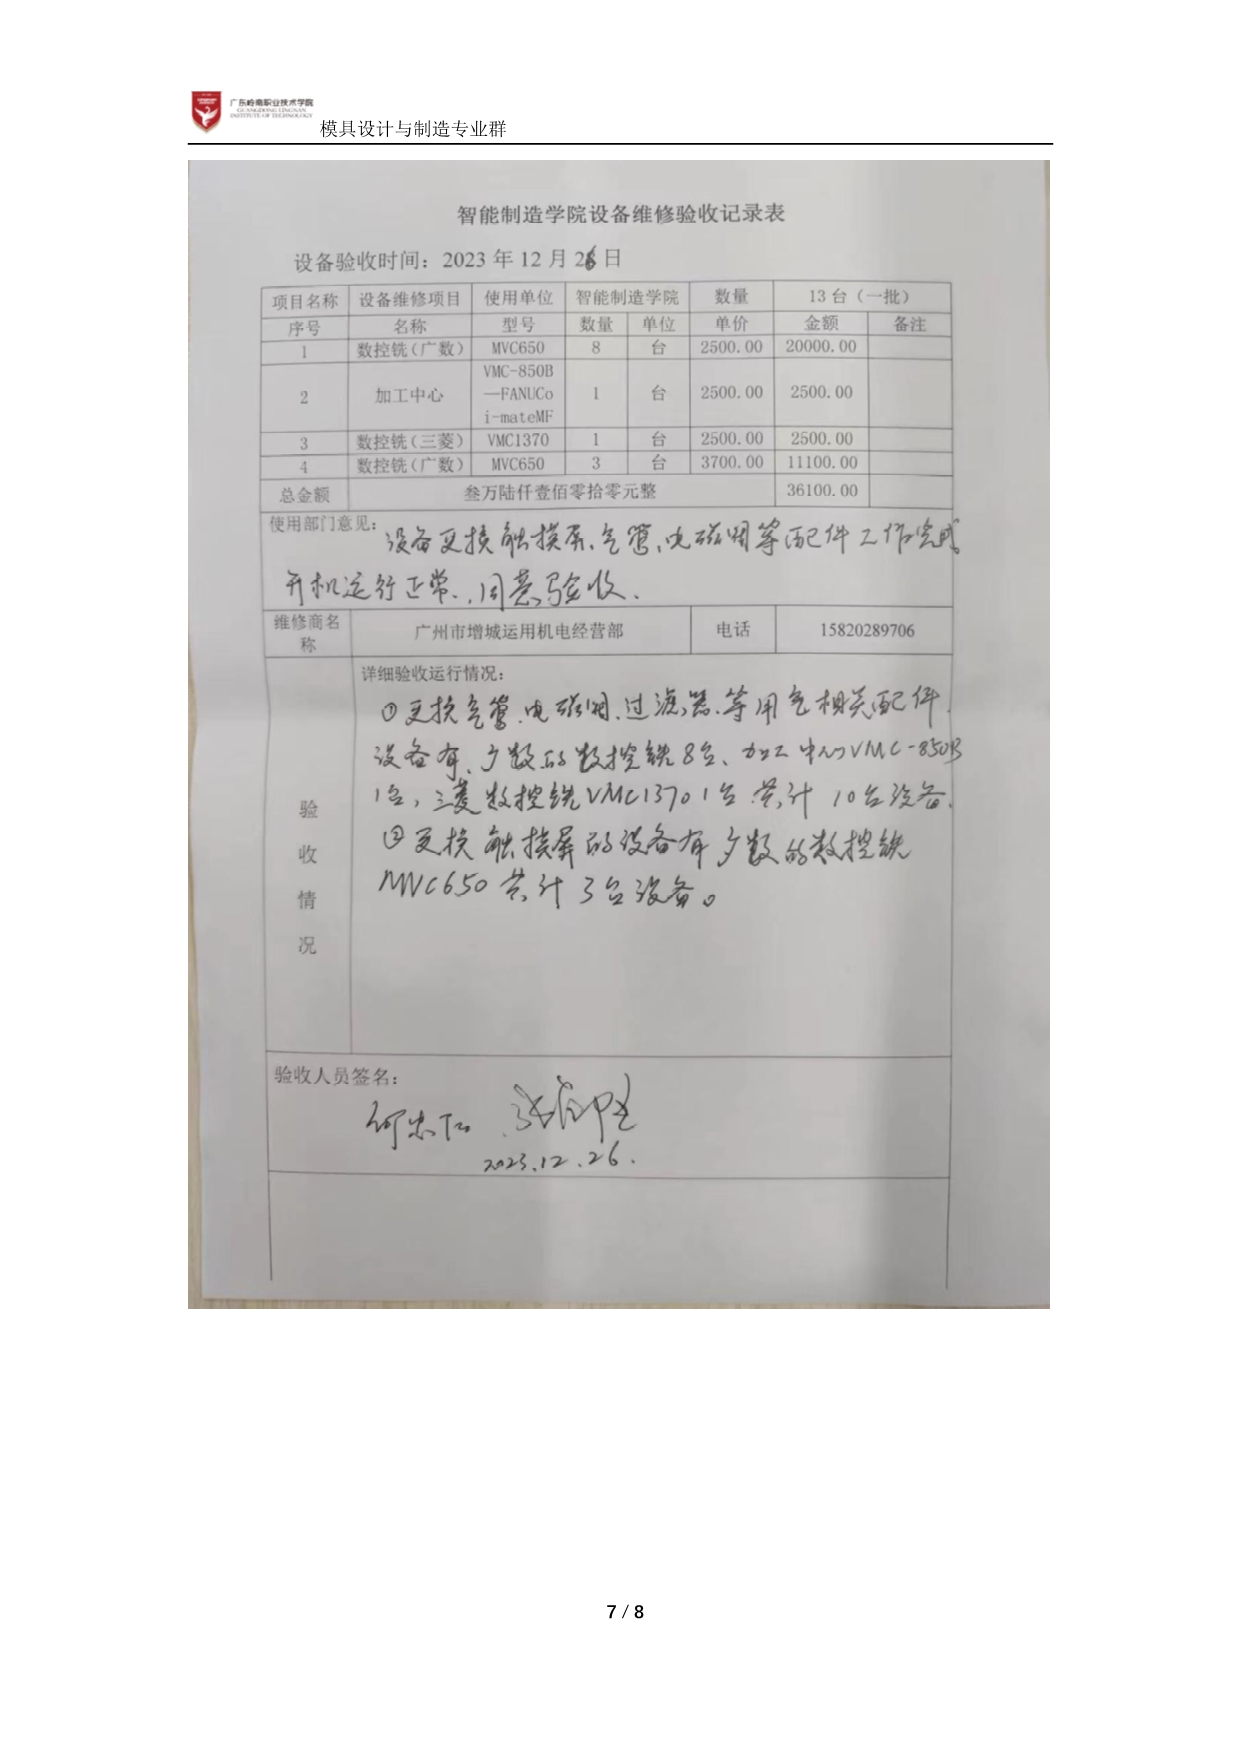 广东岭南职业技术学院
GUANGDONG LINGNAN
INSTITUTE OF TECHNOLOGY
模具设计与制造专业群
智能制造学院设备维修验收记录表
设备验收时间：2023 年 12 月 26 日
项目名称 设备维修项目 使用单位 智能制造学院 数量 13 台（一批）
序号 名称 型号 数量 单位 单价 金额 备注
1 数控铣（广数） MVC650 8 台 2500.00 20000.00
2 加工中心 VMC-850B—FANUCo i-mateMF 1 台 2500.00 2500.00
3 数控铣（三菱） VMC1370 1 台 2500.00 2500.00
4 数控铣（广数） MVC650 3 台 3700.00 11100.00
总金额 叁万陆仟壹佰零拾零元整 36100.00
使用部门意见：设备更换触摸屏、气管、电磁阀等配件工作完成
开机运行正常.，同意验收.
维修商名称 广州市增城运用机电经营部 电话 15820289706
验收情况
详细验收运行情况：
①更换气管、电磁阀、过滤器、等用气相关配件.
设备有、广数的数控铣8台、加工中心VMC-850B
1台，三菱数控铣VMC1370 1台 共计 10台设备.
②更换触摸屏的设备有广数的数控铣
MVC650 共计 3台设备。
验收人员签名：
何忠仁
2023.12.26.
7 / 8